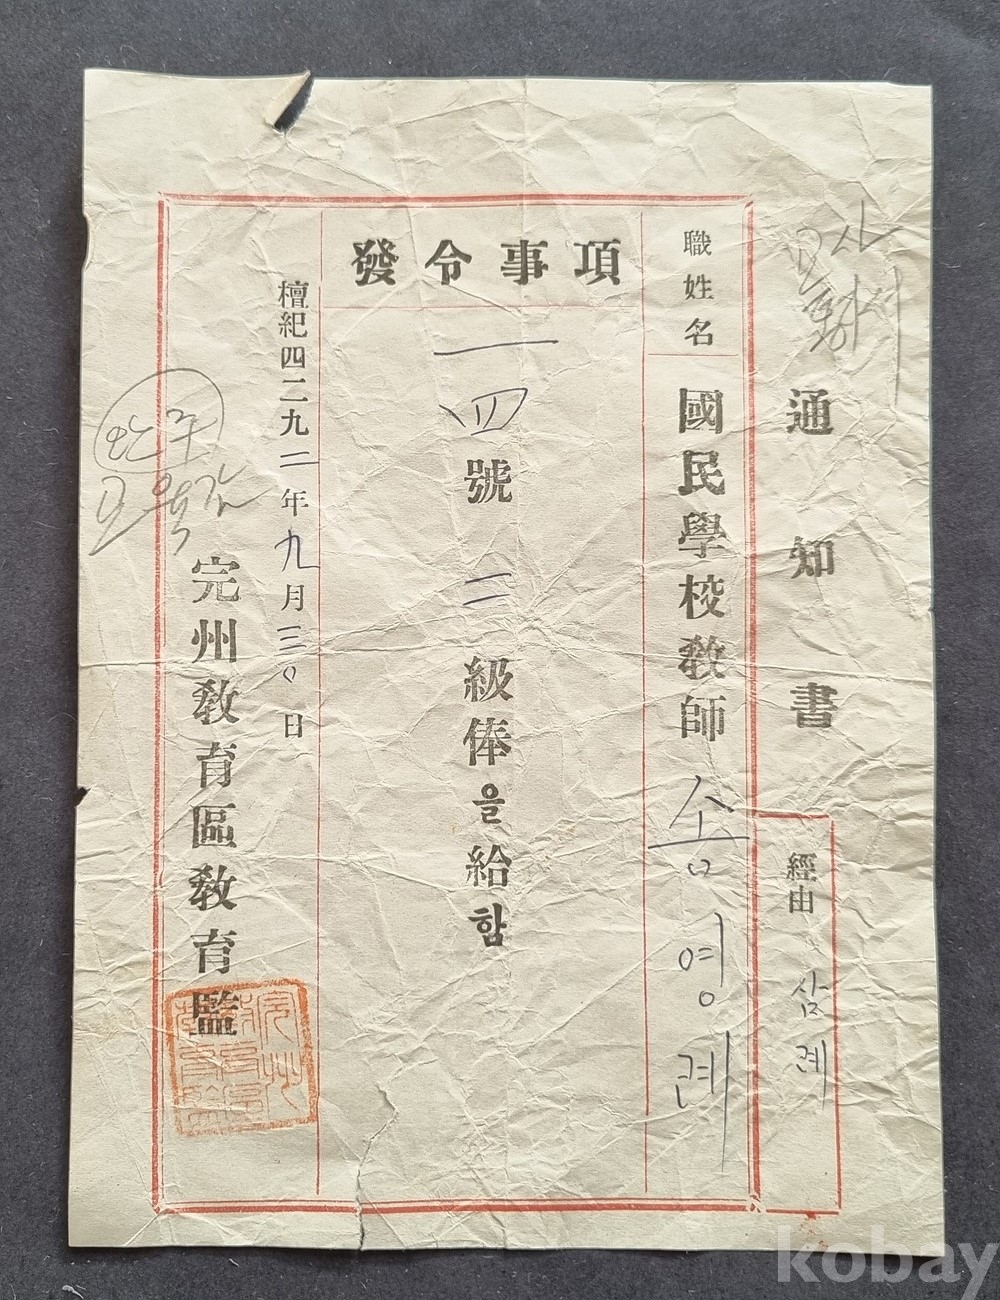 通知書
經由 삼례
職姓名
國民學校敎師 송영례
發令事項
一四號二級俸을給함
檀紀四二九二年九月三〇日
完州敎育區敎育監
완주
교육감
kobay